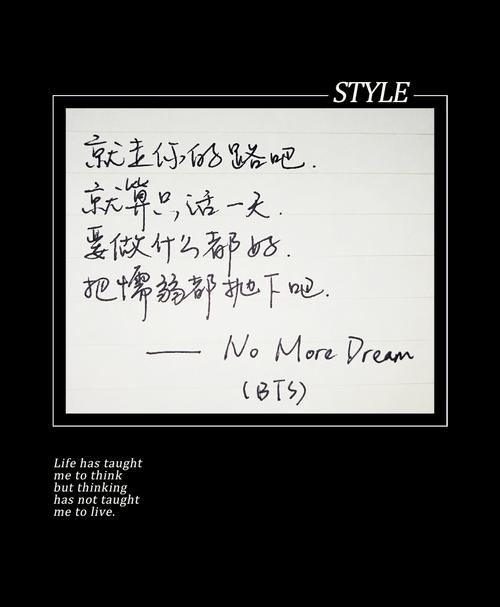 STYLE
就走你的路吧.
就算只活一天.
要做什么都好.
把懦弱都抛下吧.
—— No More Dream
(BTS)
Life has taught
me to think
but thinking
has not taught
me to live.